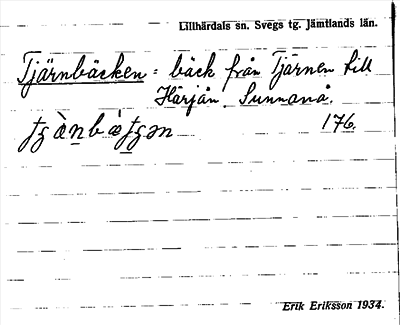 Lillhärdals sn. Svegs tg. Jämtlands län.
Tjärnbäcken = bäck från Tjärnen till
Härjån. Sunnanå.
176.
Erik Eriksson 1934.